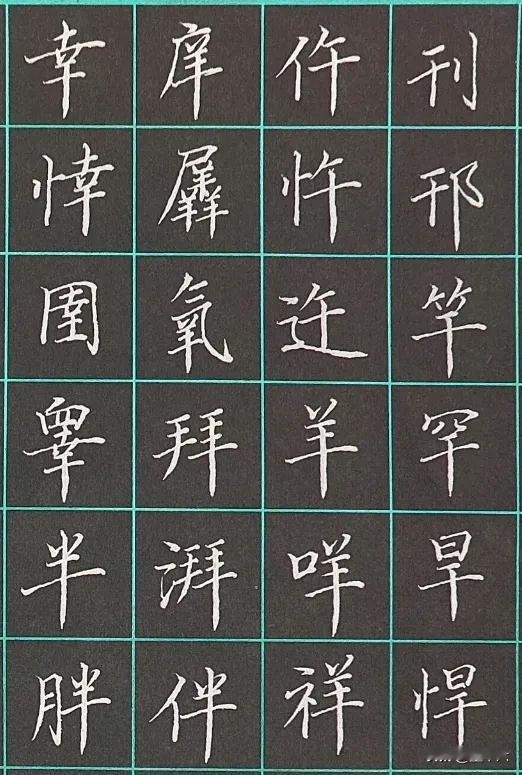 刊邗竿罕旱悍
仵忤迕羊咩祥
庠羼氧拜湃伴
幸悻圉睾半胖